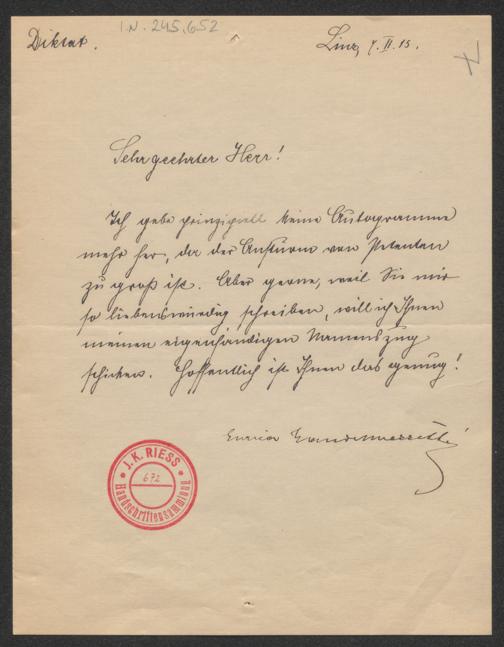 I.N. 245.652
Diktat.
Linz, 7. II. 15.
Sehrgeehrter Herr!
Ich gebe prinzipiell keine Autogramme
mehr her, da der Ansturm von Petenten
zu groß ist. Aber gerne, weil Sie mir
so liebenswürdig schreiben, will ich Ihnen
meinen eigenhändigen Namenszug
schicken. Hoffentlich ist Ihnen das genug!
Enrica
J. K. RIESS
672
Handschriftensammlung